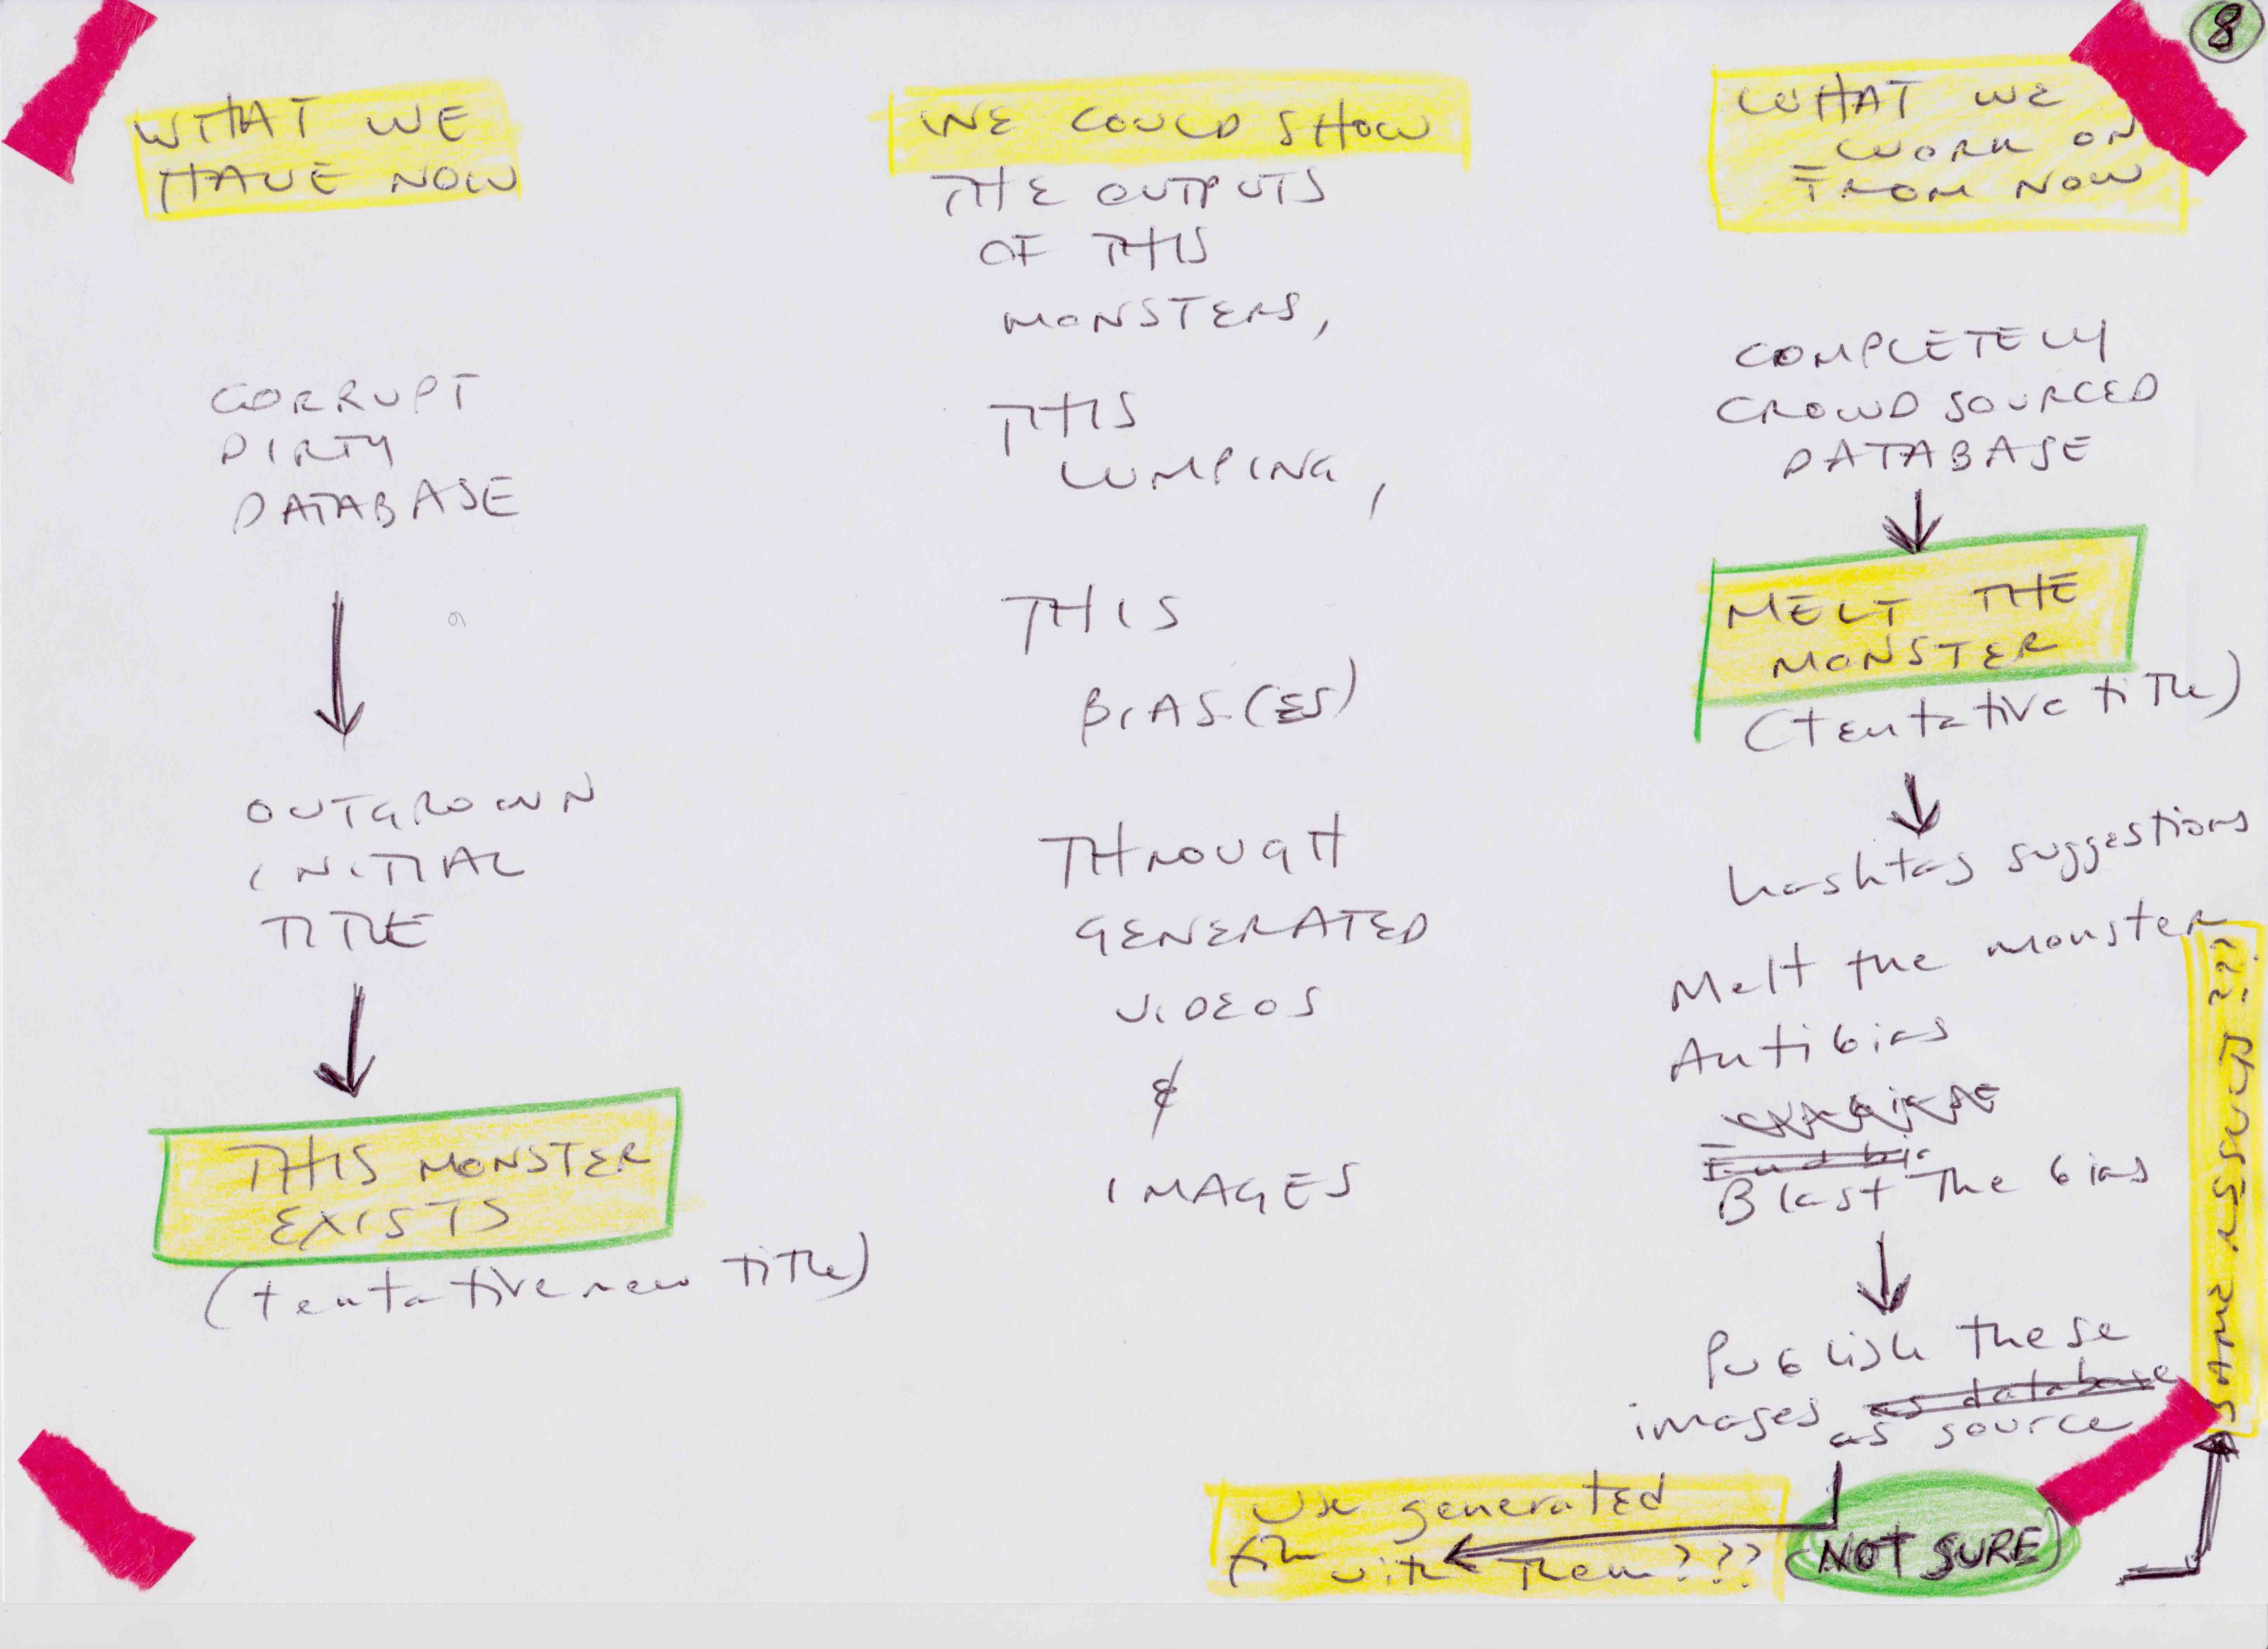 8
WHAT WE
HAVE NOW
CORRUPT
DIRTY
DATABASE
OUTGROWN
INITIAL
TITLE
THIS MONSTER
EXISTS
(tentative new title)
WE COULD SHOW
THE OUTPUTS
OF THIS
MONSTERS,
THIS
LUMPING,
THIS
BIAS(ES)
THROUGH
GENERATED
VIDEOS
&
IMAGES
WHAT WE
WORK ON
FROM NOW
COMPLETELY
CROWD SOURCED
DATABASE
MELT THE
MONSTER
(tentative title)
hashtag suggestions
Melt the monster
Antibias
End bi
Blast the bias
Publish these
images as database
as source
Use generated
with them???
(NOT SURE)
SAME RESULT ???